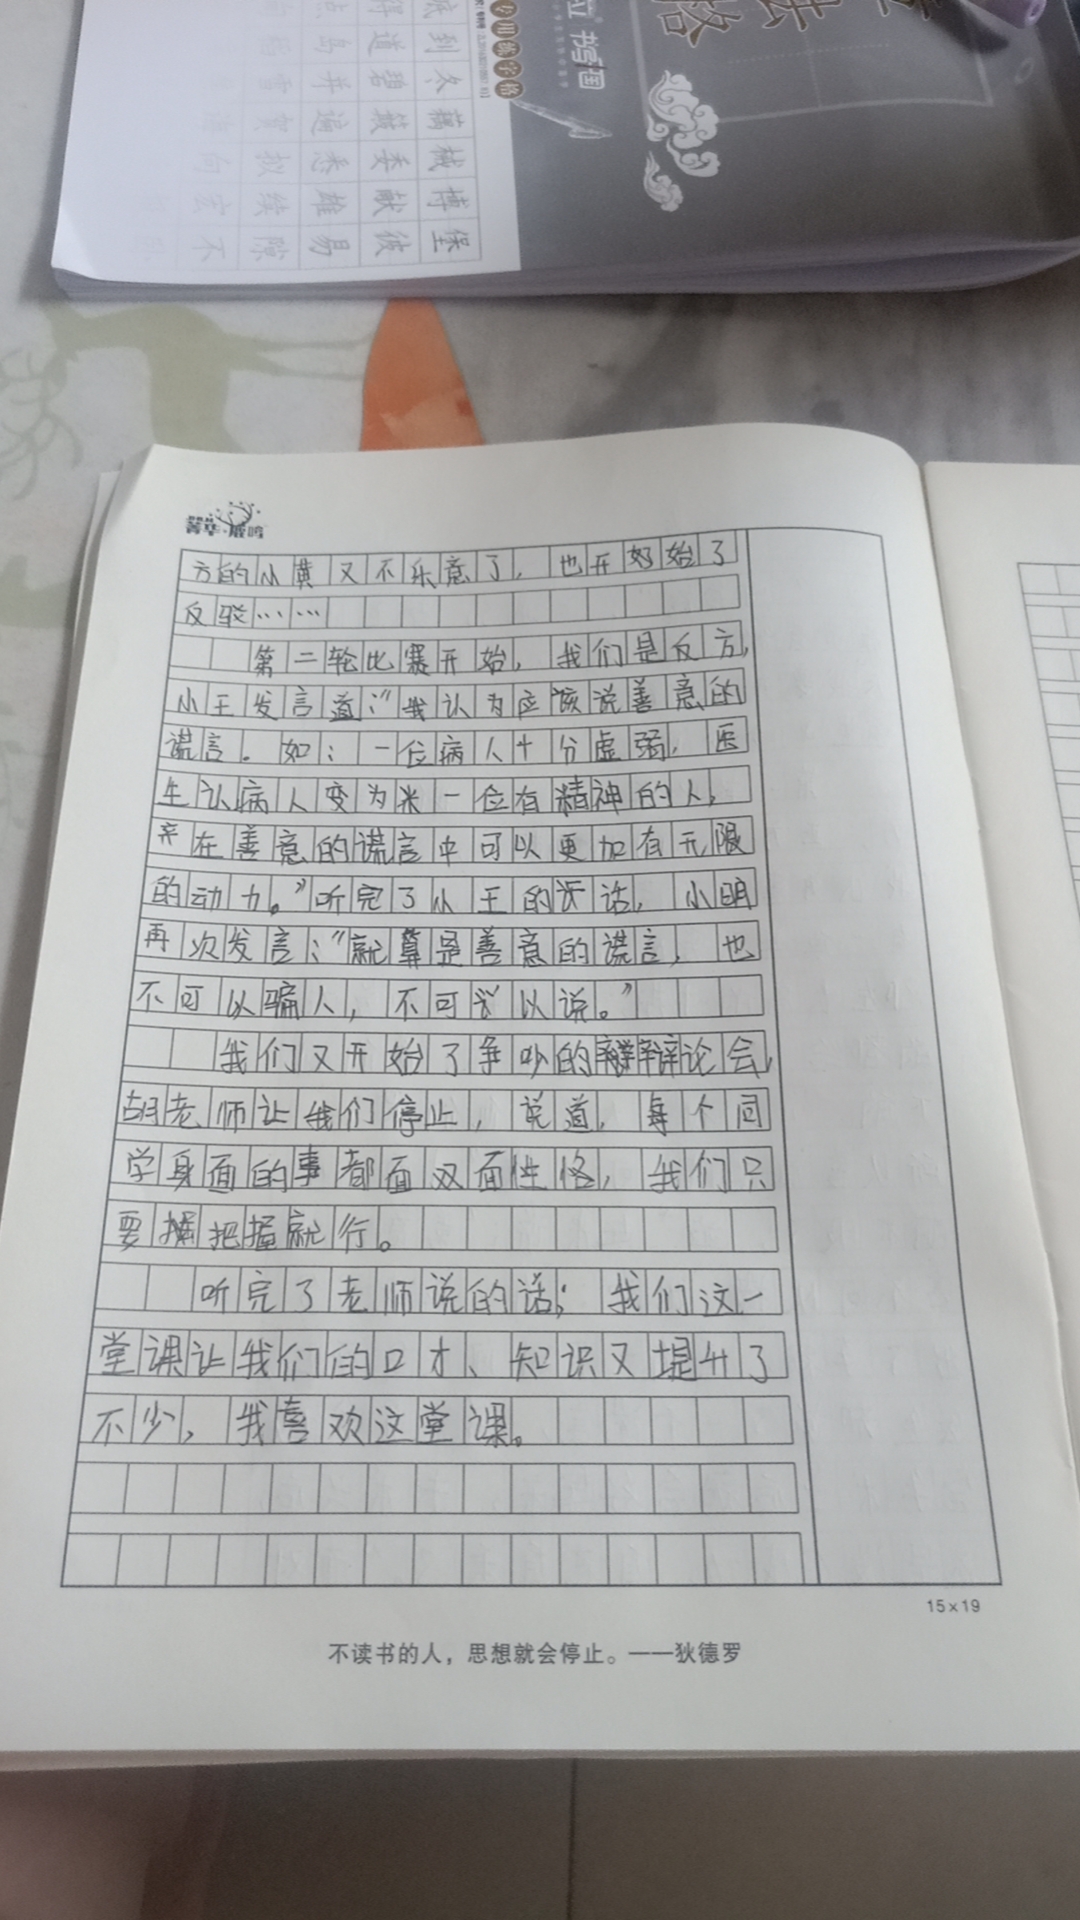 底到久藕械博堡
得道碧筑委献彼
点岛并遍悉雄易
专用练字格
菁华·鹿鸣
方的小黄又不乐意了，也开始了
反驳……
第二轮比赛开始，我们是反方，
小王发言道：“我认为应该说善意的
谎言。如：一位病人十分虚弱，医
生认病人变为来一位有精神的人，
在善意的谎言中可以更加有无限
的动力。”听完了小王的话，小明
再次发言：“就算是善意的谎言，也
不可以骗人，不可以说。”
我们又开始了争吵的辩论会，
胡老师让我们停止，说道，每个同
学身面的事都面双面性格，我们只
要把握就行。
听完了老师说的话；我们这一
堂课让我们的口才、知识又提升了
不少，我喜欢这堂课。
15×19
不读书的人，思想就会停止。——狄德罗